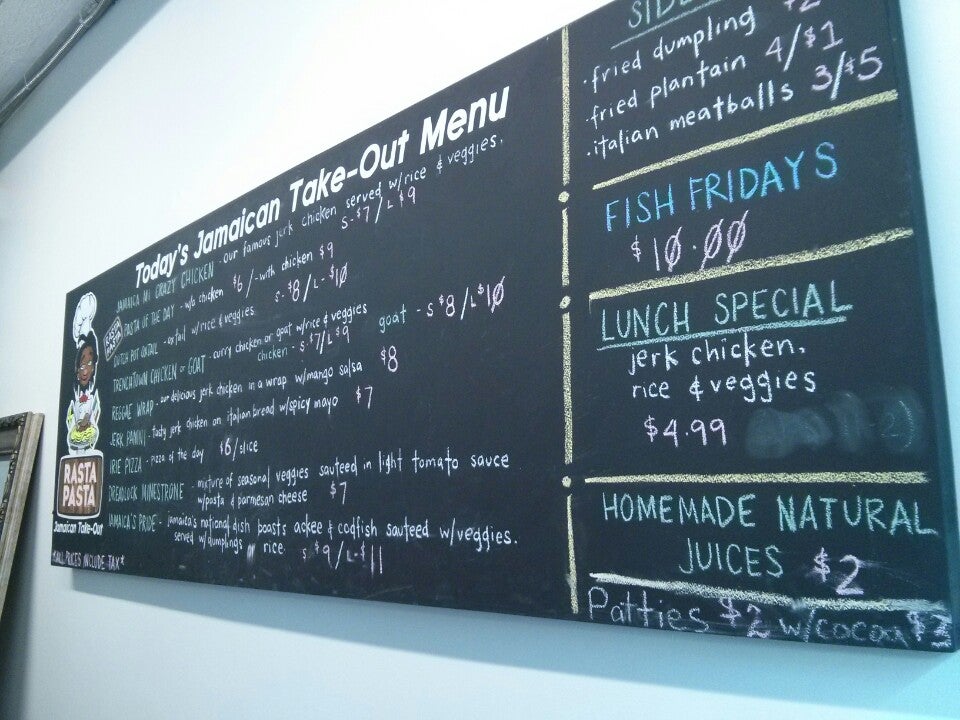 Today's Jamaican Take-Out Menu
JAMAICA MI CRAZY CHICKEN - our famous jerk chicken served w/rice & veggies.
S-$7/L$9
PASTA OF THE DAY - w/o chicken $6/-with chicken $9
DUTCH POT OXTAIL - oxtail w/rice & veggies S-$8/L-$10
TRENCHTOWN CHICKEN or GOAT - curry chicken or goat w/rice & veggies
chicken - S-$7/L$9 goat - S$8/L-$10
REGGAE WRAP - our delicious jerk chicken in a wrap w/mango salsa $8
JERK PANINI - tasty jerk chicken on italian bread w/spicy mayo $7
IRIE PIZZA - pizza of the day $6/slice
DREADLOCK MINESTRONE - mixture of seasonal veggies sauteed in light tomato sauce
w/pasta & parmesan cheese $7
JAMAICA'S PRIDE - jamaica's national dish boasts ackee & codfish sauteed w/veggies.
served w/dumplings rice S-$9/L-$11
RASTA
PASTA
Jamaican Take-Out
*ALL PRICES INCLUDE TAX*
·fried dumpling
·fried plantain 4/$1
·italian meatballs 3/$5
FISH FRIDAYS
$10.00
LUNCH SPECIAL
jerk chicken,
rice & veggies
$4.99
HOMEMADE NATURAL
JUICES $2
Patties $2 w/cocoa $3